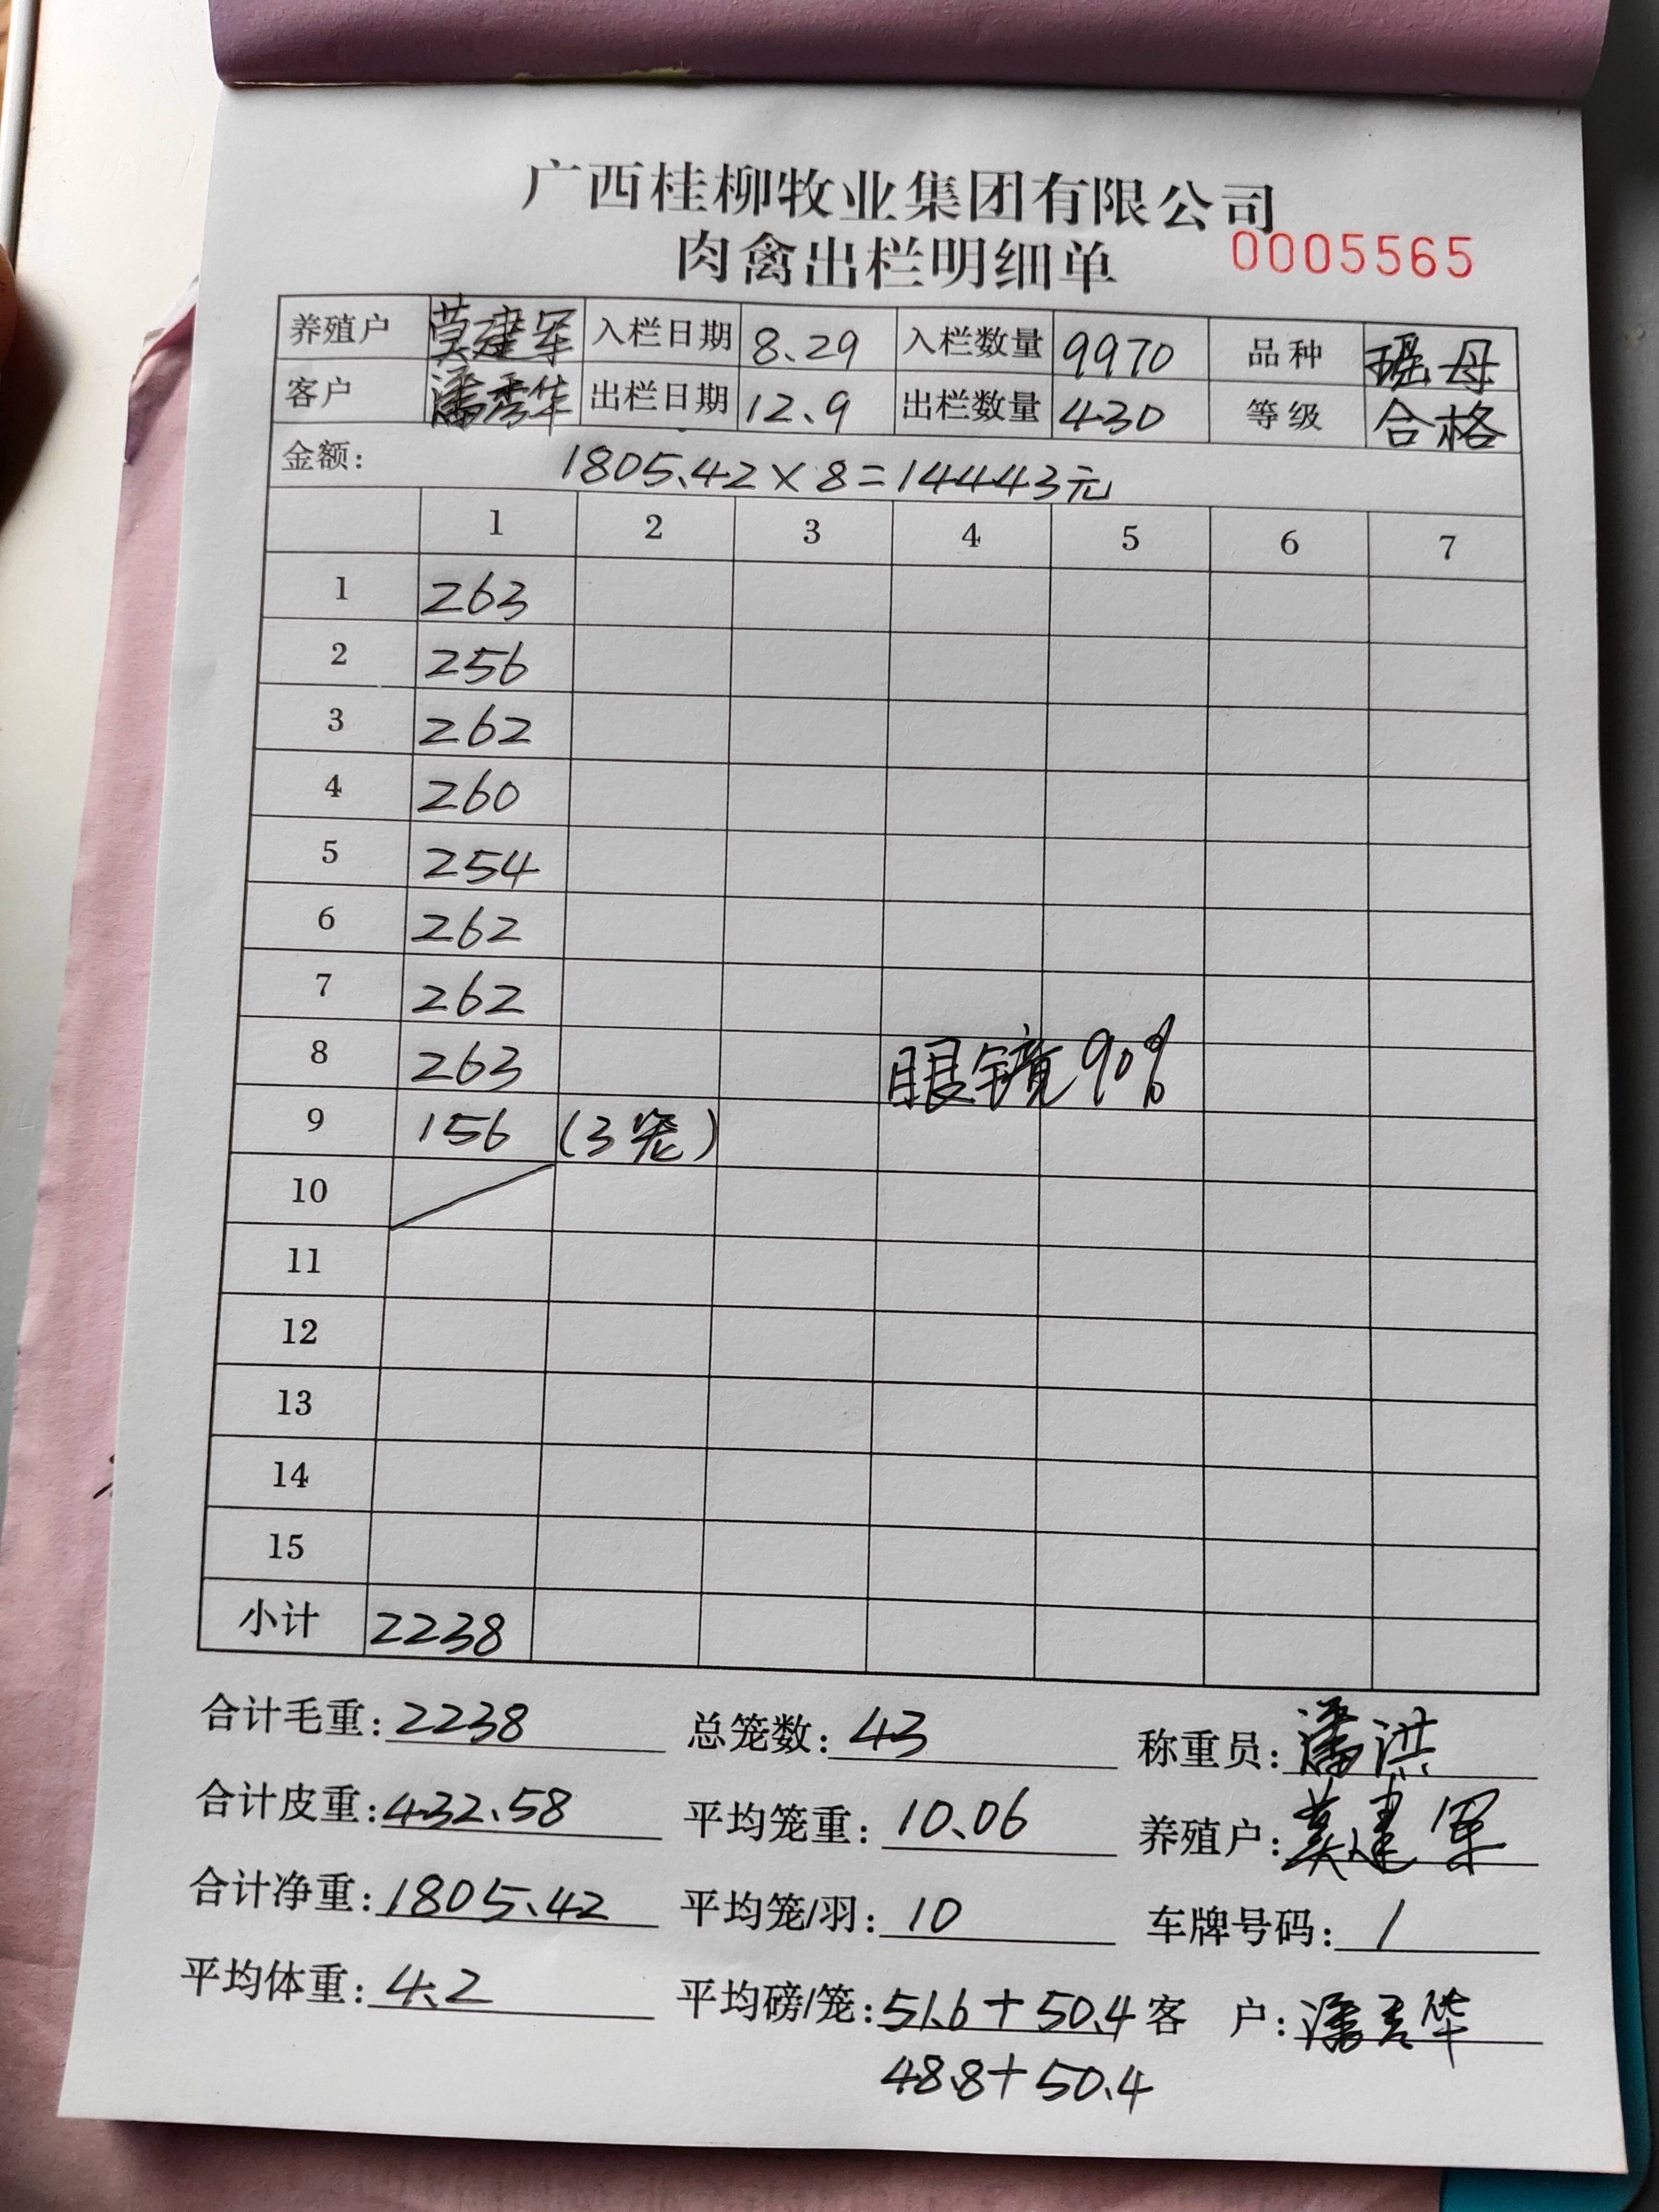 广西桂柳牧业集团有限公司
肉禽出栏明细单 0005565
养殖户 莫建军 入栏日期 8.29 入栏数量 9970 品种 母
客户 潘秀华 出栏日期 12.9 出栏数量 430 等级 合格
金额: 1805.42×8=14443元
1 2 3 4 5 6 7
1 263
2 256
3 262
4 260
5 254
6 262
7 262
8 263 眼镜90%
9 156 (3笼)
10
11
12
13
14
15
小计 2238
合计毛重: 2238 总笼数: 43 称重员: 潘洪
合计皮重: 432.58 平均笼重: 10.06 养殖户: 莫建军
合计净重: 1805.42 平均笼/羽: 10 车牌号码: /
平均体重: 4.2 平均磅/笼: 51.6+50.4 客 户: 潘秀华
48.8+50.4